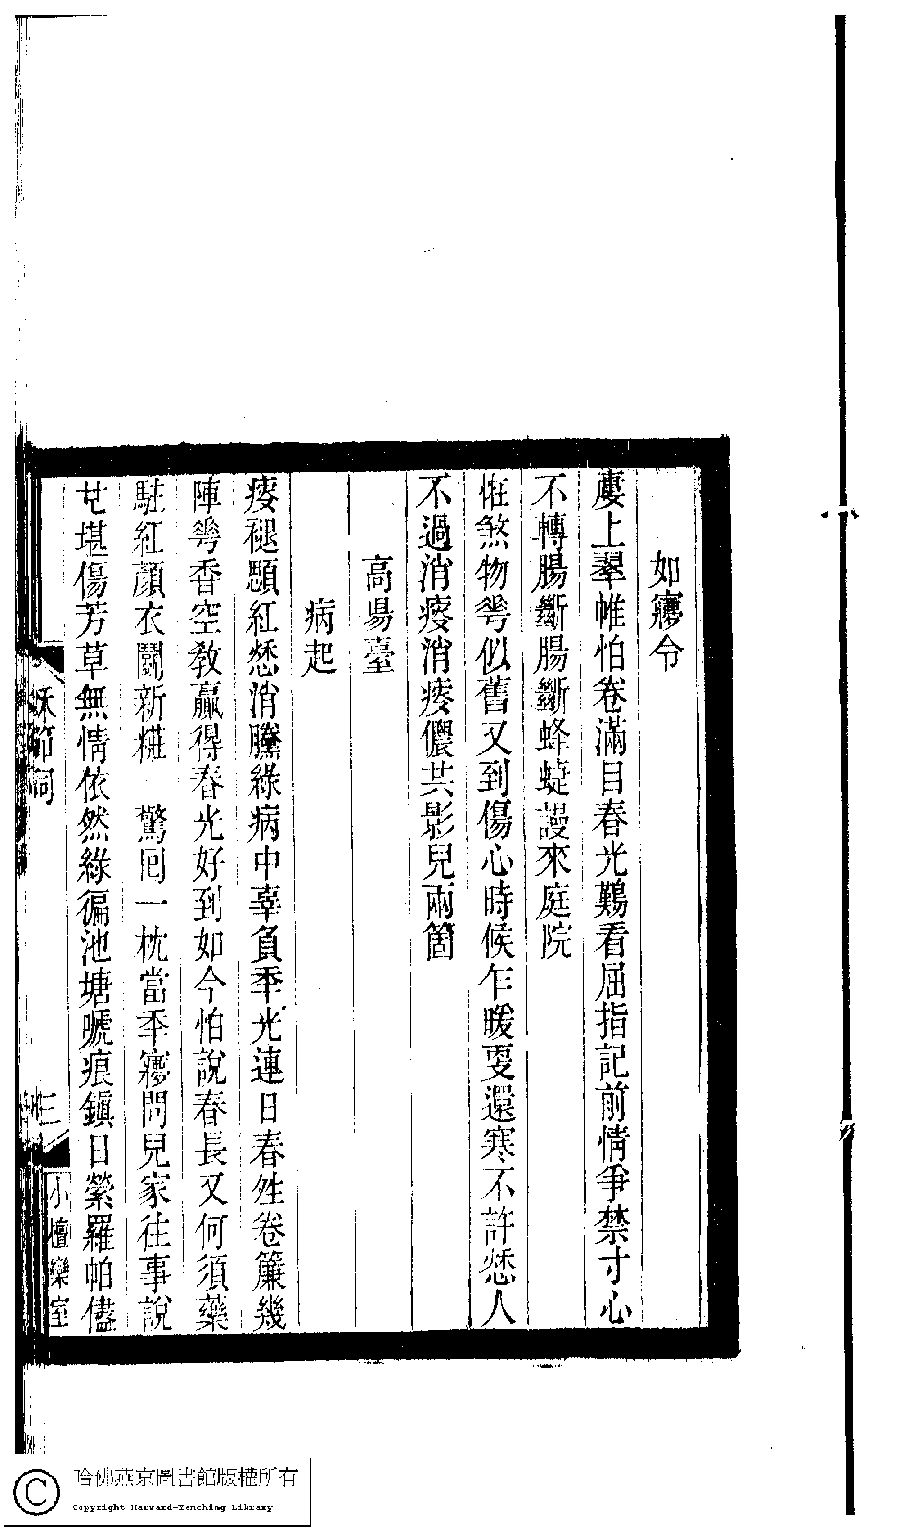 如㝱令
廔上翠帷怕卷滿目春光鷬看屈指記前情爭禁寸心
不轉腸斷腸斷蜂蜨謾來庭院
惟煞物𠌶似舊又到傷心時候乍暖㪅還寒不許愁人
不過消瘦消瘦儂共影兒兩箇
高昜臺
病起
瘦褪顋紅愁消黱綠病中辜負秊光連日春夝卷簾幾
陣𠌶香空敎贏得春光好到如今怕說春長又何須藥
駐紅顏衣鬭新糚　驚回一枕當秊㝱問兒家往事說
也堪傷芳草無情依然綠徧池塘嗁痕鎭日縈羅帕儘
詞
三
小檀欒室
哈佛燕京圖書館版權所有
Copyright Harvard-Yenching Library